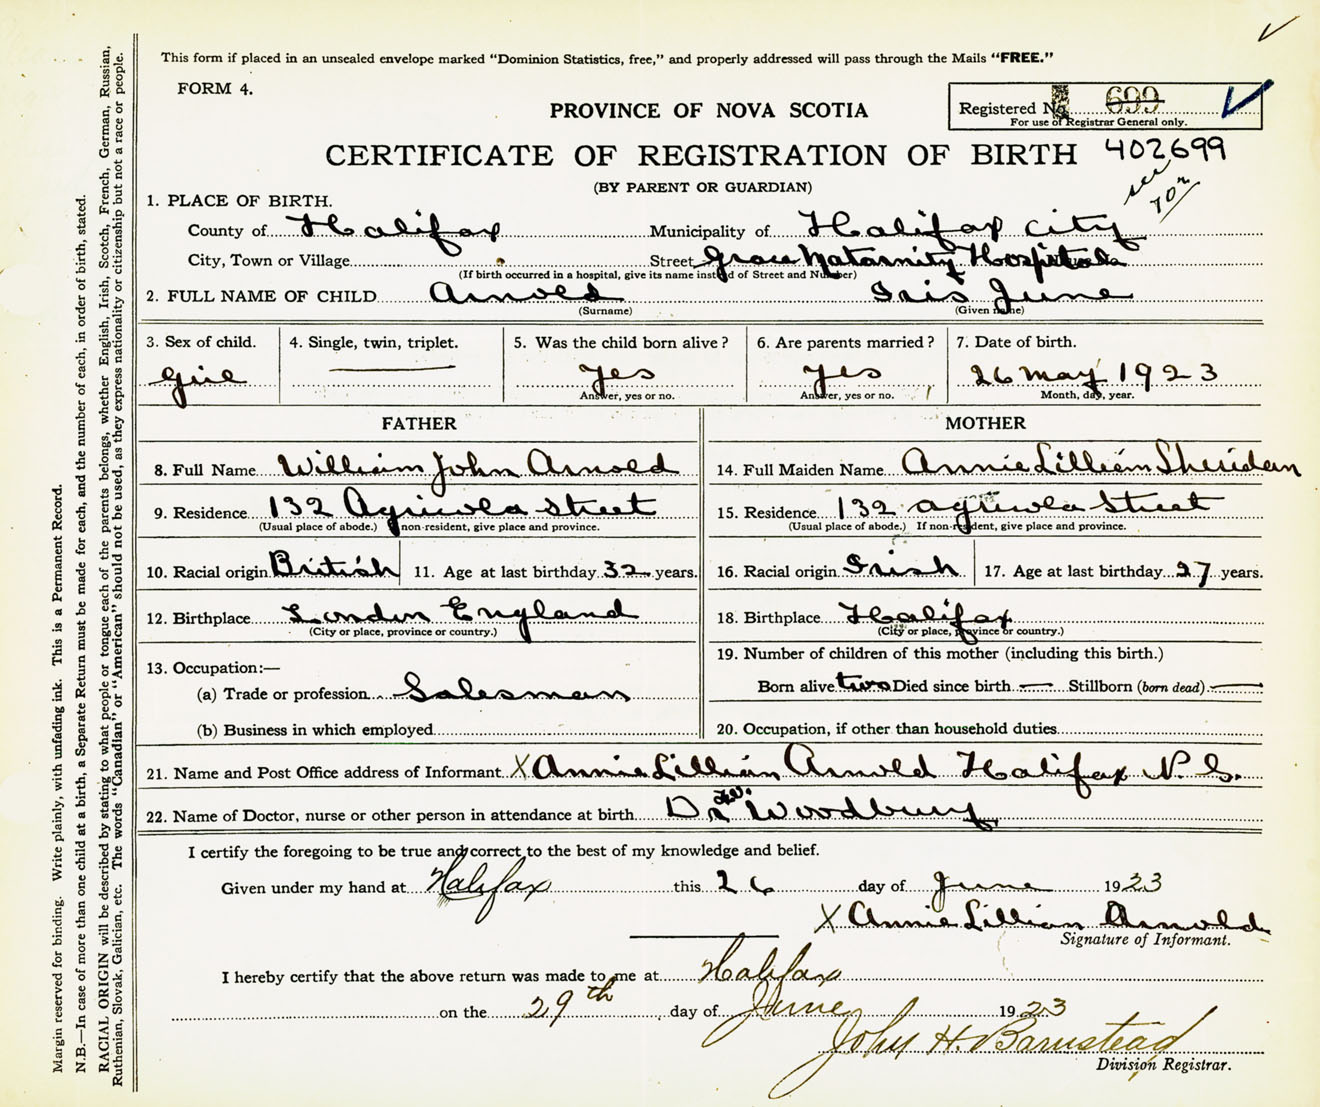 This form if placed in an unsealed envelope marked “Dominion Statistics, free,” and properly addressed will pass through the Mails “FREE.”
FORM 4.
PROVINCE OF NOVA SCOTIA
Registered No. 699
For use of Registrar General only.
CERTIFICATE OF REGISTRATION OF BIRTH 402699
(BY PARENT OR GUARDIAN)
1. PLACE OF BIRTH.
County of Halifax Municipality of Halifax City
City, Town or Village Street Grace Maternity Hospital
(If birth occurred in a hospital, give its name instead of Street and Number)
2. FULL NAME OF CHILD Arnold Iris June
(Surname) (Given name)
3. Sex of child. 4. Single, twin, triplet. 5. Was the child born alive? 6. Are parents married? 7. Date of birth.
Girl — Yes Yes 26 May 1923
Answer, yes or no. Answer, yes or no. Month, day, year.
FATHER MOTHER
8. Full Name William John Arnold 14. Full Maiden Name Annie Lillian Sheridan
9. Residence 132 Agricola Street 15. Residence 132 Agricola Street
(Usual place of abode.) If non-resident, give place and province. (Usual place of abode.) If non-resident, give place and province.
10. Racial origin British 11. Age at last birthday 32 years. 16. Racial origin Irish 17. Age at last birthday 27 years.
12. Birthplace London England 18. Birthplace Halifax
(City or place, province or country.) (City or place, province or country.)
13. Occupation:— 19. Number of children of this mother (including this birth.)
(a) Trade or profession Salesman Born alive two Died since birth — Stillborn (born dead) —
(b) Business in which employed 20. Occupation, if other than household duties
21. Name and Post Office address of Informant X Annie Lillian Arnold Halifax N.S.
22. Name of Doctor, nurse or other person in attendance at birth Dr Woodbury
I certify the foregoing to be true and correct to the best of my knowledge and belief.
Given under my hand at Halifax this 26 day of June 1923
X Annie Lillian Arnold
Signature of Informant.
I hereby certify that the above return was made to me at Halifax
on the 29th day of June 1923
John H. Barnstead
Division Registrar.
Margin reserved for binding. Write plainly, with unfading ink. This is a Permanent Record.
N.B.—In case of more than one child at a birth, a Separate Return must be made for each, and the number of each, in order of birth, stated.
RACIAL ORIGIN will be described by stating to what people or tongue each of the parents belongs, whether English, Irish, Scotch, French, German, Russian,
Ruthenian, Slovak, Galician, etc. The words “Canadian” or “American” should not be used, as they express nationality or citizenship but not a race or people.